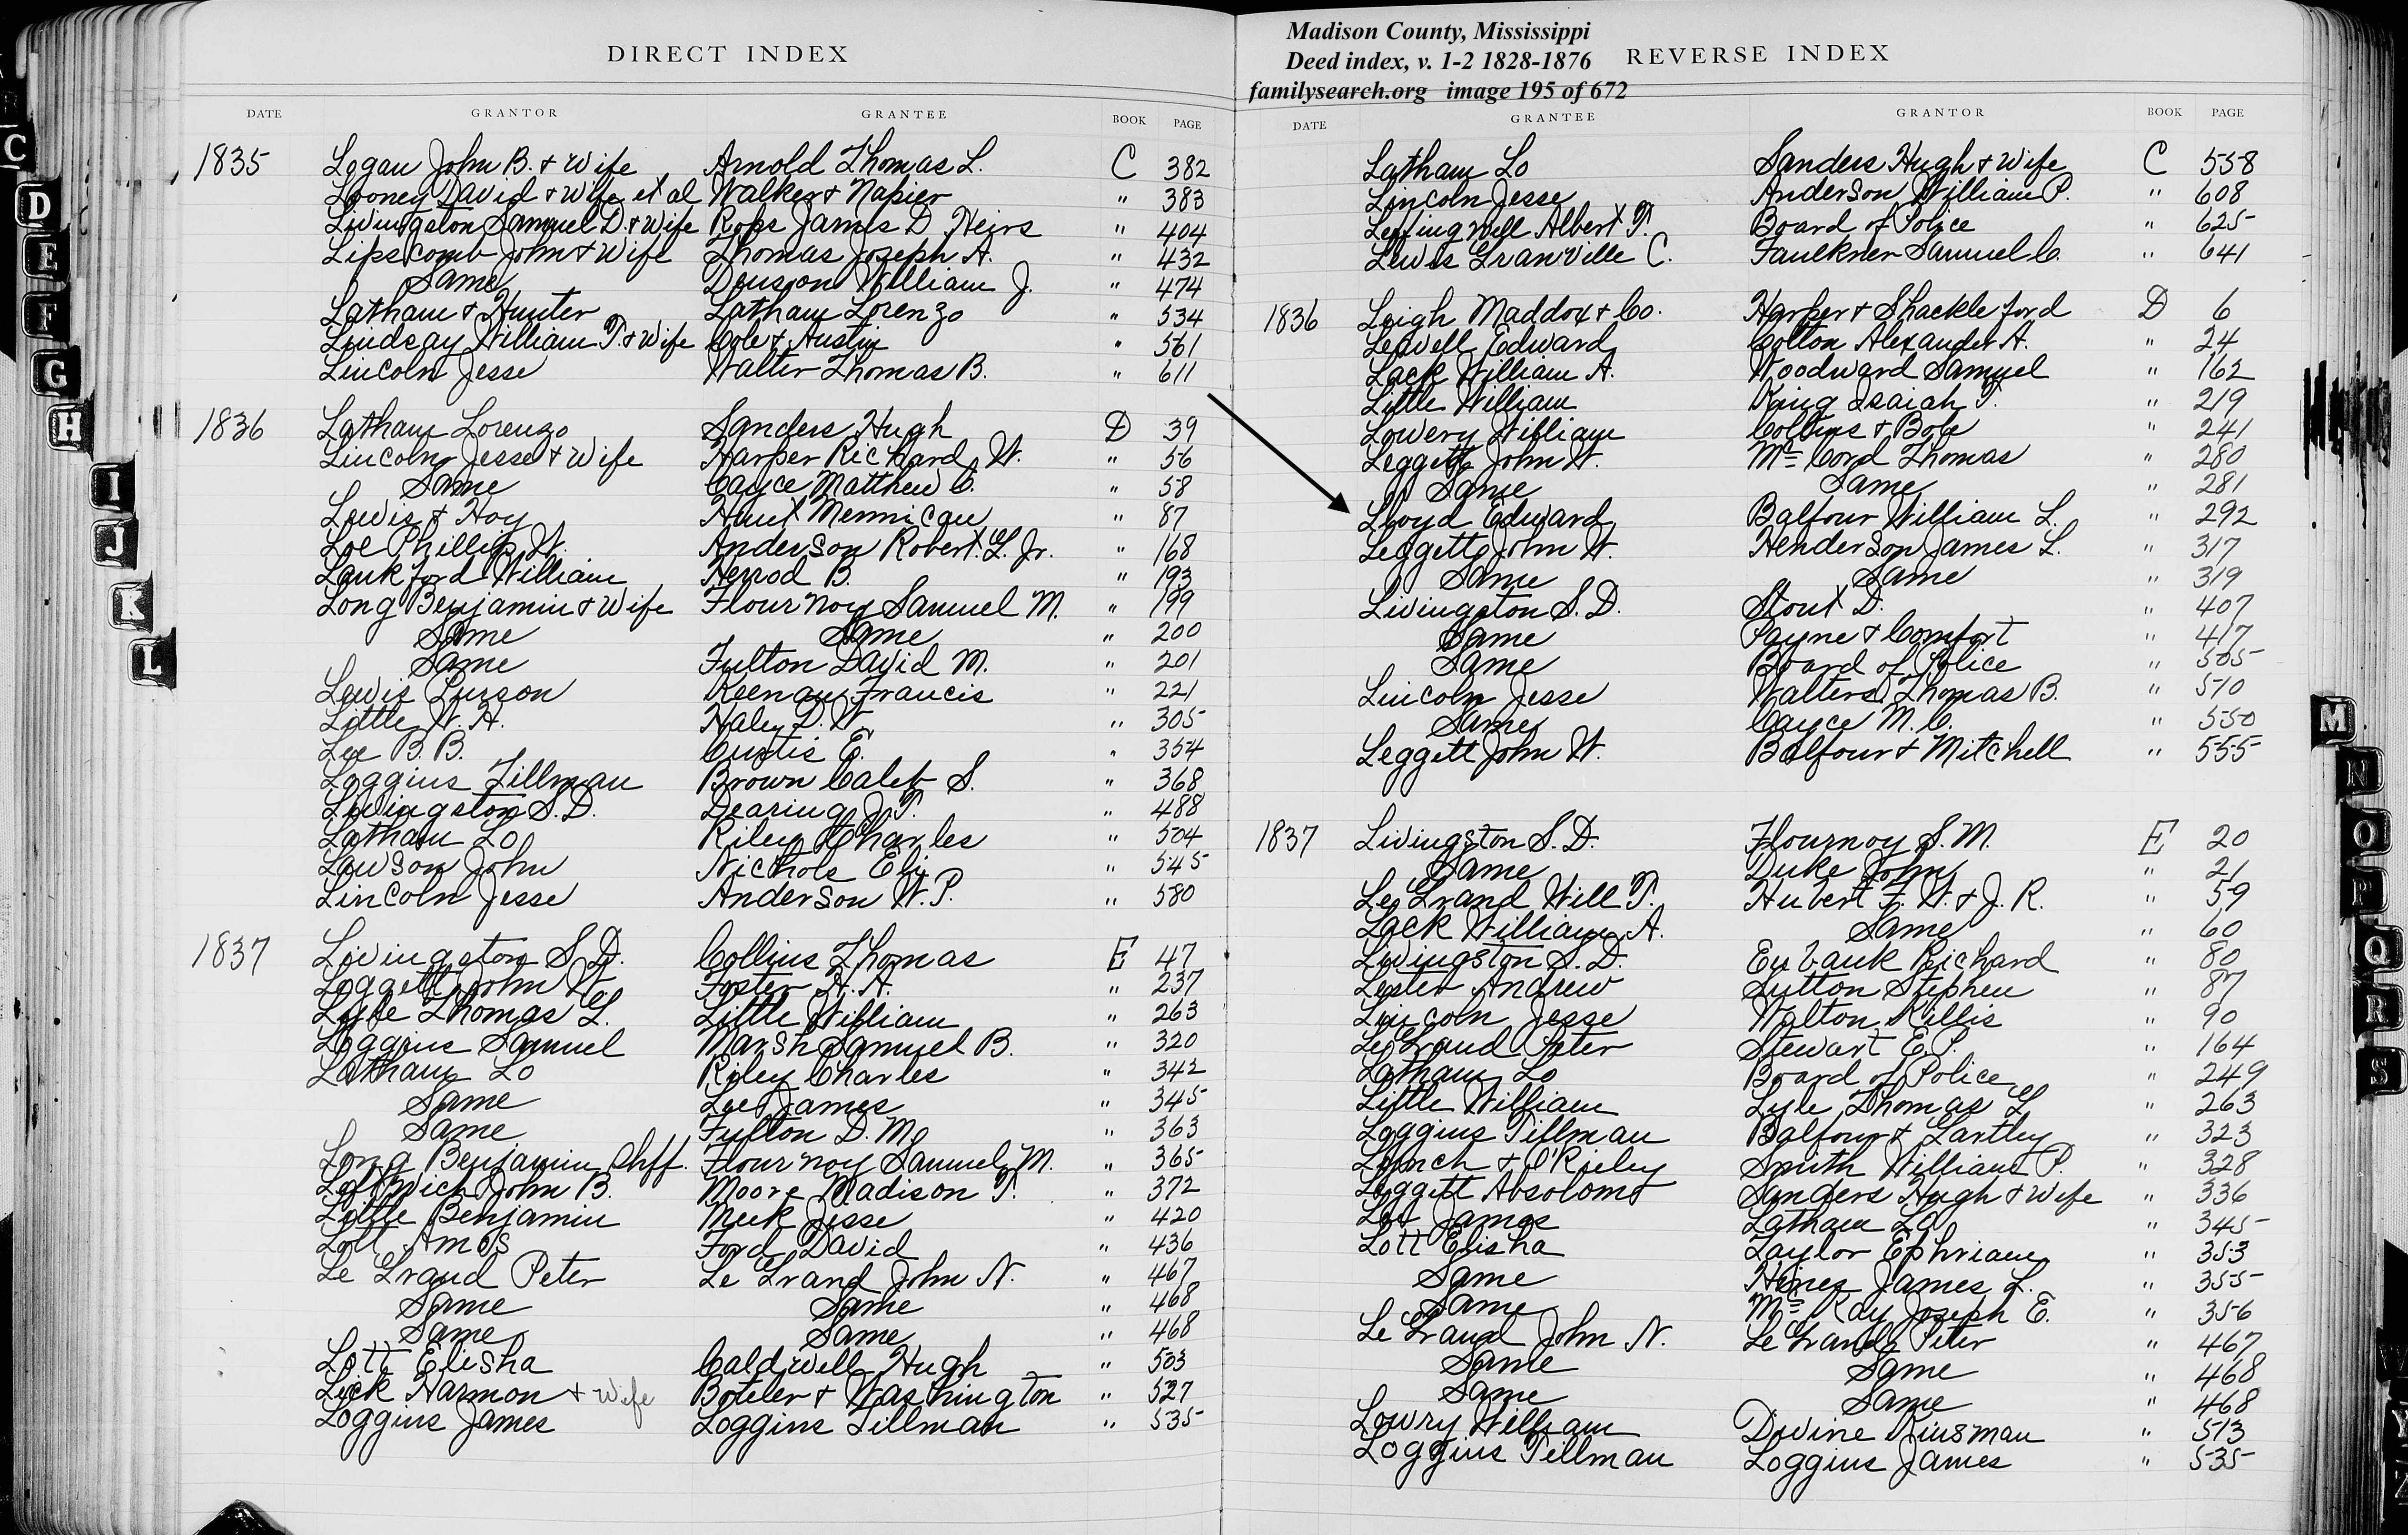 Madison County, Mississippi
Deed index, v. 1-2 1828-1876
familysearch.org image 195 of 672
DIRECT INDEX
DATE GRANTOR GRANTEE BOOK PAGE
1835 Logan John B. & Wife Arnold Thomas L. C 382
Looney David & Wife et al Walker & Napier " 383
Livingston Samuel D. & Wife Ross James D Heirs " 404
Lipscomb John & Wife Thomas Joseph A. " 432
Same Denson William J. " 474
Latham & Hunter Latham Lorenzo " 534
Lindsay William T. & Wife Cole & Austin " 561
Lincoln Jesse Walter Thomas B. " 611
1836 Latham Lorenzo Sanders Hugh D 39
Lincoln Jesse & Wife Harper Richard W. " 56
Same Cayce Matthew C. " 58
Lewis & Hoy Hunt Memucan " 87
Loe Phillip W. Anderson Robert L. Jr. " 168
Lankford William Herrod B. " 193
Long Benjamin & Wife Flournoy Samuel M. " 199
Same Same " 200
Same Fulton David M. " 201
Lewis Keenan Francis " 221
Little W. A. Haley D. W. " 305
Lee B. B. Curtis E. " 354
Loggins Tillman Brown Caleb S. " 368
Livingston S. D. Dearing J. T. " 488
Latham Lo Riley Charles " 504
Lawson John Nichols Eli " 545
Lincoln Jesse Anderson W. P. " 580
1837 Livingston S. D. Collins Thomas E 47
Leggett John W. Foster A. A. " 237
Lyle Thomas L. Little William " 263
Loggins Samuel Marsh Samuel B. " 320
Latham Lo Riley Charles " 342
Same Lee James " 345
Same Fulton D. M. " 363
Long Benjamin Shff. Flournoy Samuel M. " 365
Leftwich John B. Moore Madison T. " 372
Little Benjamin Meek Jesse " 420
Lott Amos Ford David " 436
Le Grand Peter Le Grand John N. " 467
Same Same " 468
Same Same " 468
Lott Elisha Caldwell Hugh " 503
Lick Harmon & Wife Boteler & Washington " 527
Loggins James Loggins Tillman " 535
REVERSE INDEX
DATE GRANTEE GRANTOR BOOK PAGE
Latham Lo Sanders Hugh & Wife C 558
Lincoln Jesse Anderson William P. " 608
Leffingwell Albert T. Board of Police " 625
Lewis Granville C. Faulkner Samuel C. " 641
1836 Leigh Maddox & Co. Harper & Shackleford D 6
Lewell Edward Colton Alexander A. " 24
Lack William A. Woodward Samuel " 162
Little William King Isaiah T. " 219
Lowery William Collins & Bole " 241
Leggett John W. Mc Cord Thomas " 280
Same Same " 281
Lloyd Edward Balfour William L. " 292
Leggett John W. Henderson James L. " 317
Same Same " 319
Livingston S. D. Stout D. " 407
Same Payne & Comfort " 417
Same Board of Police " 505
Lincoln Jesse Walters Thomas B. " 510
Same Cayce M. C. " 550
Leggett John W. Balfour & Mitchell " 555
1837 Livingston S. D. Flournoy S. M. E 20
Same Duke John " 21
Le Grand Will T. Hubert F. W. & J. R. " 59
Lack William A. Same " 60
Livingston S. D. Eubank Richard " 80
Lester Andrew Sutton Stephen " 87
Lincoln Jesse Walton Killis " 90
Le Grand Peter Stewart E. P. " 164
Latham Lo Board of Police " 249
Little William Lyle Thomas L " 263
Loggins Tillman Balfour & Gartley " 323
Lynch & O'Rieley Smith William P. " 328
Leggett Absolom Sanders Hugh & Wife " 336
Lee James Latham Lo " 345
Lott Elisha Taylor Ephriam " 353
Same Hines James L. " 355
Same Mc Kay Joseph E. " 356
Le Grand John N. Le Grand Peter " 467
Same Same " 468
Same Same " 468
Lowry William Divine Kinsman " 513
Loggins Tillman Loggins James " 535
C
D
E
F
G
H
I
J
K
L
M
N
O
P
Q
R
S